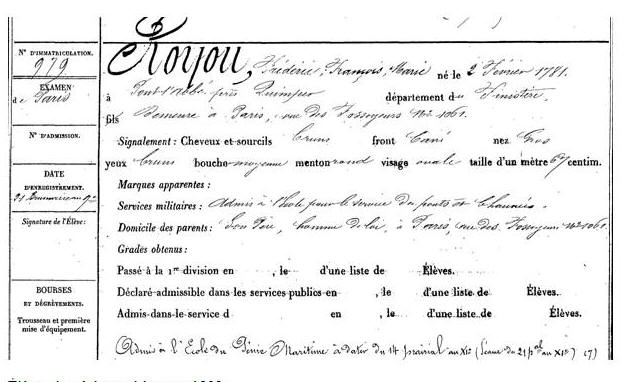 N° D'IMMATRICULATION.
979
EXAMEN
de Paris
N° D'ADMISSION.
DATE
D'ENREGISTREMENT.
21 Brumaire an 9
Signature de l'Élève:
BOURSES
ET DÉGRÈVEMENTS.
Trousseau et première
mise d'équipement.
Royou, Frédéric, François, Marie né le 2 Février 1781.
à Pont-l'Abbé près Quimper département du Finistère,
fils demeure à Paris, rue des Fossoyeurs N° 1061.
Signalement: Cheveux et sourcils bruns front nez Gros
yeux bruns bouche moyenne menton rond visage ovale taille d'un mètre 67 centim.
Marques apparentes:
Services militaires: Admis à l'école pour le service des ponts et Chaussées.
Domicile des parents: Son Père, homme de loi, à Paris, rue des Fossoyeurs N° 1061.
Grades obtenus:
Passé à la 1re division en , le d'une liste de Élèves.
Déclaré admissible dans les services publics en , le d'une liste de Élèves.
Admis dans le service d en , le d'une liste de Élèves.
Admis à l'École du Génie Maritime à dater du 14 prairial an XIe (Séance du 21 pal an XIe)